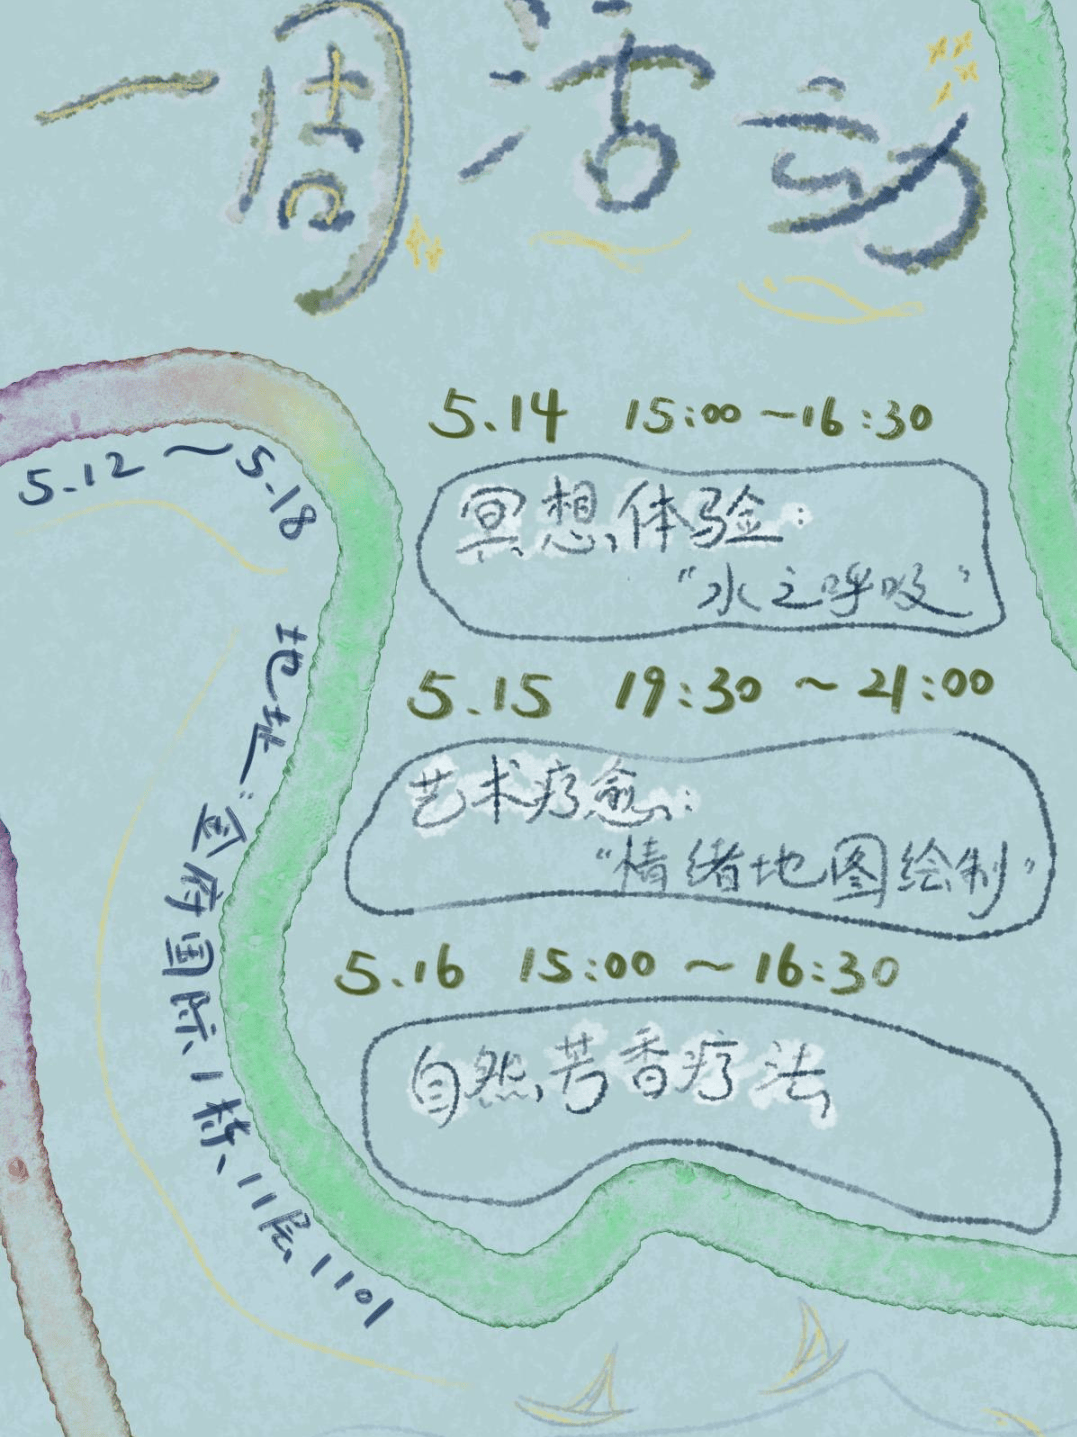 一周活动
5.12～5.18
5.14 15:00～16:30
冥想体验：
“水之呼吸”
5.15 19:30～21:00
艺术疗愈：
“情绪地图绘制”
5.16 15:00～16:30
自然芳香疗法
地址：府国际1栋11层1101